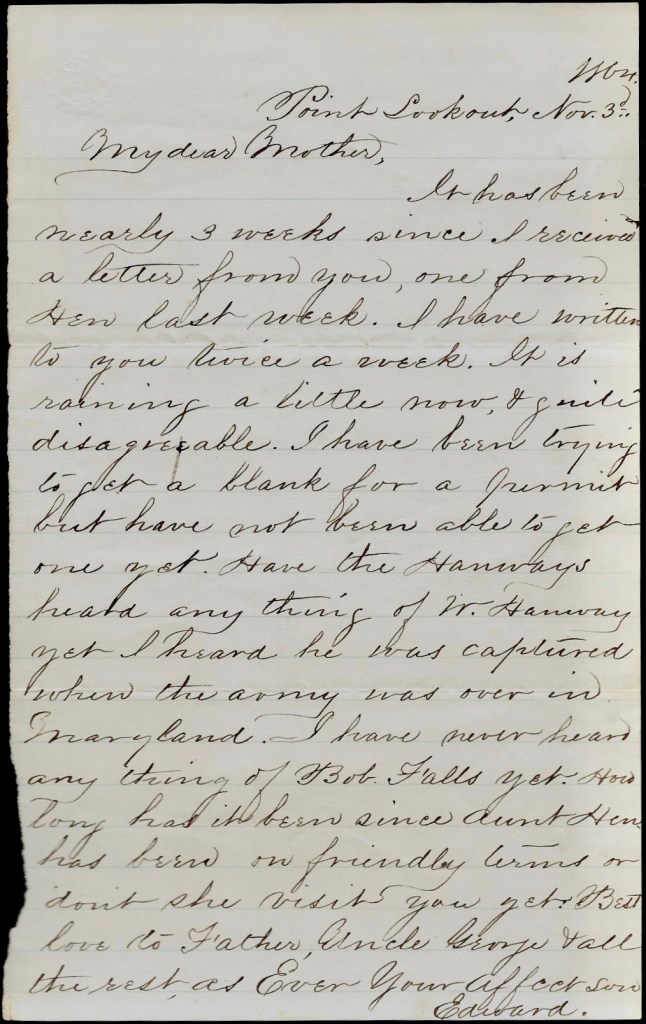 Point Lookout, Nov. 3d.
My dear Mother,
It has been
nearly 3 weeks since I received
a letter from you, one from
Hen last week. I have written
to you twice a week. It is
raining a little now, & quite
disagreeable. I have been trying
to get a blank for a permit
but have not been able to get
one yet. Have the Hanways
heard any thing of W. Hanway
yet I heard he was captured
when the army was over in
Maryland. I have never heard
any thing of Bob. Falls yet. How
long has it been since Aunt Hen.
has been on friendly terms or
don't she visit you yet. Best
love to Father, Uncle George & all
the rest, as Ever Your Affect son
Edward.